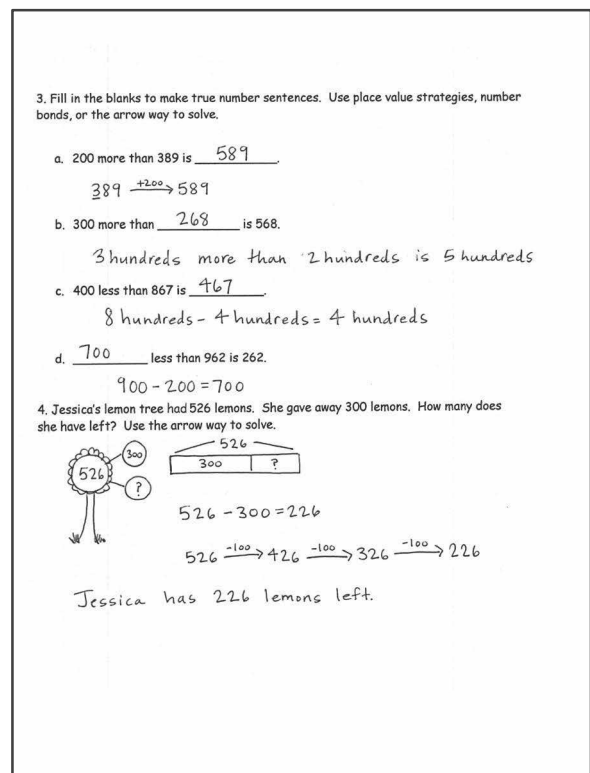 3. Fill in the blanks to make true number sentences. Use place value strategies, number
bonds, or the arrow way to solve.
a. 200 more than 389 is 589.
389 +200→ 589
b. 300 more than 268 is 568.
3 hundreds more than 2 hundreds is 5 hundreds
c. 400 less than 867 is 467.
8 hundreds - 4 hundreds = 4 hundreds
d. 700 less than 962 is 262.
900 - 200 = 700
4. Jessica's lemon tree had 526 lemons. She gave away 300 lemons. How many does
she have left? Use the arrow way to solve.
526
300
?
526
300 ?
526 - 300 = 226
526 -100→ 426 -100→ 326 -100→ 226
Jessica has 226 lemons left.